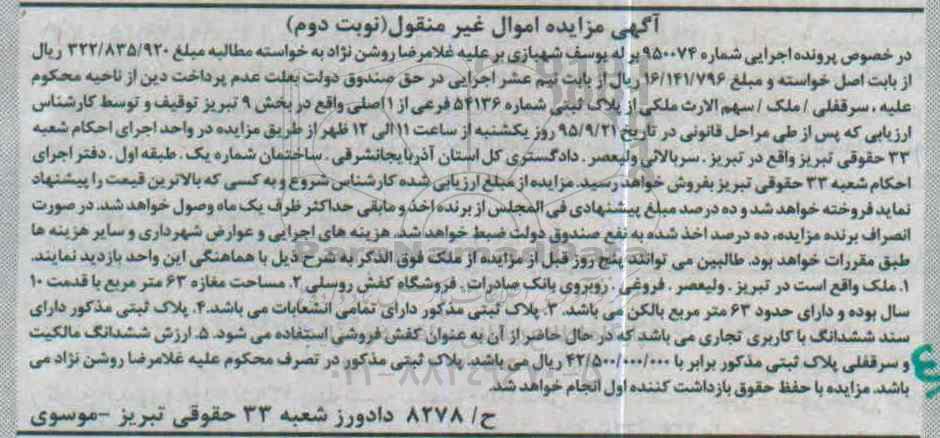 آگهی مزایده اموال غیر منقول(نوبت دوم)
در خصوص پرونده اجرایی شماره ۹۵۰۰۷۴ پر له یوسف شهبازی بر علیه غلامرضا روشن نژاد به خواسته مطالبه مبلغ ۳۲۲/۸۳۵/۹۲۰ ریال
از بابت اصل خواسته و مبلغ ۱۶/۱۴۱/۷۹۶ ریال از بابت نیم عشر اجرایی در حق صندوق دولت بعلت عدم پرداخت دین از ناحیه محکوم
علیه ، سرقفلی / ملک / سهم الارث ملکی از پلاک ثبتی شماره ۵۴۱۳۶ فرعی از ۱ اصلی واقع در بخش ۹ تبریز توقیف و توسط کارشناس
ارزیابی که پس از طی مراحل قانونی در تاریخ ۹۵/۹/۲۱ روز یکشنبه از ساعت ۱۱ الی ۱۲ ظهر از طریق مزایده در واحد اجرای احکام شعبه
۳۳ حقوقی تبریز واقع در تبریز . سربالائی ولیعصر . دادگستری کل استان آذربایجانشرقی . ساختمان شماره یک . طبقه اول . دفتر اجرای
احکام شعبه ۳۳ حقوقی تبریز بفروش خواهد رسید. مزایده از مبلغ ارزیابی شده کارشناس شروع و به کسی که بالاترین قیمت را پیشنهاد
نماید فروخته خواهد شد و ده درصد مبلغ پیشنهادی فی المجلس از برنده اخذ و مابقی حداکثر ظرف یک ماه وصول خواهد شد. در صورت
انصراف برنده مزایده، ده درصد اخذ شده به نفع صندوق دولت ضبط خواهد شد. هزینه های اجرایی و عوارض شهرداری و سایر هزینه ها
طبق مقررات خواهد بود. طالبین می توانند پنج روز قبل از مزایده از ملک فوق الذکر به شرح ذیل با هماهنگی این واحد بازدید نمایند.
۱. ملک واقع است در تبریز . ولیعصر . فروغی . روبروی بانک صادرات . فروشگاه کفش روسلی ۲. مساحت مغازه ۶۳ متر مربع با قدمت ۱۰
سال بوده و دارای حدود ۶۳ متر مربع بالکن می باشد. ۳. پلاک ثبتی مذکور دارای تمامی انشعابات می باشد. ۴. پلاک ثبتی مذکور دارای
سند ششدانگ با کاربری تجاری می باشد که در حال حاضر از آن به عنوان کفش فروشی استفاده می شود. ۵. ارزش ششدانگ مالکیت
و سرقفلی پلاک ثبتی مذکور برابر با ۴۲/۵۰۰/۰۰۰/۰۰۰ ریال می باشد. پلاک ثبتی مذکور در تصرف محکوم علیه غلامرضا روشن نژاد می
باشد. مزایده با حفظ حقوق بازداشت کننده اول انجام خواهد شد.
ح/ ۸۲۷۸ دادورز شعبه ۳۳ حقوقی تبریز –موسوی